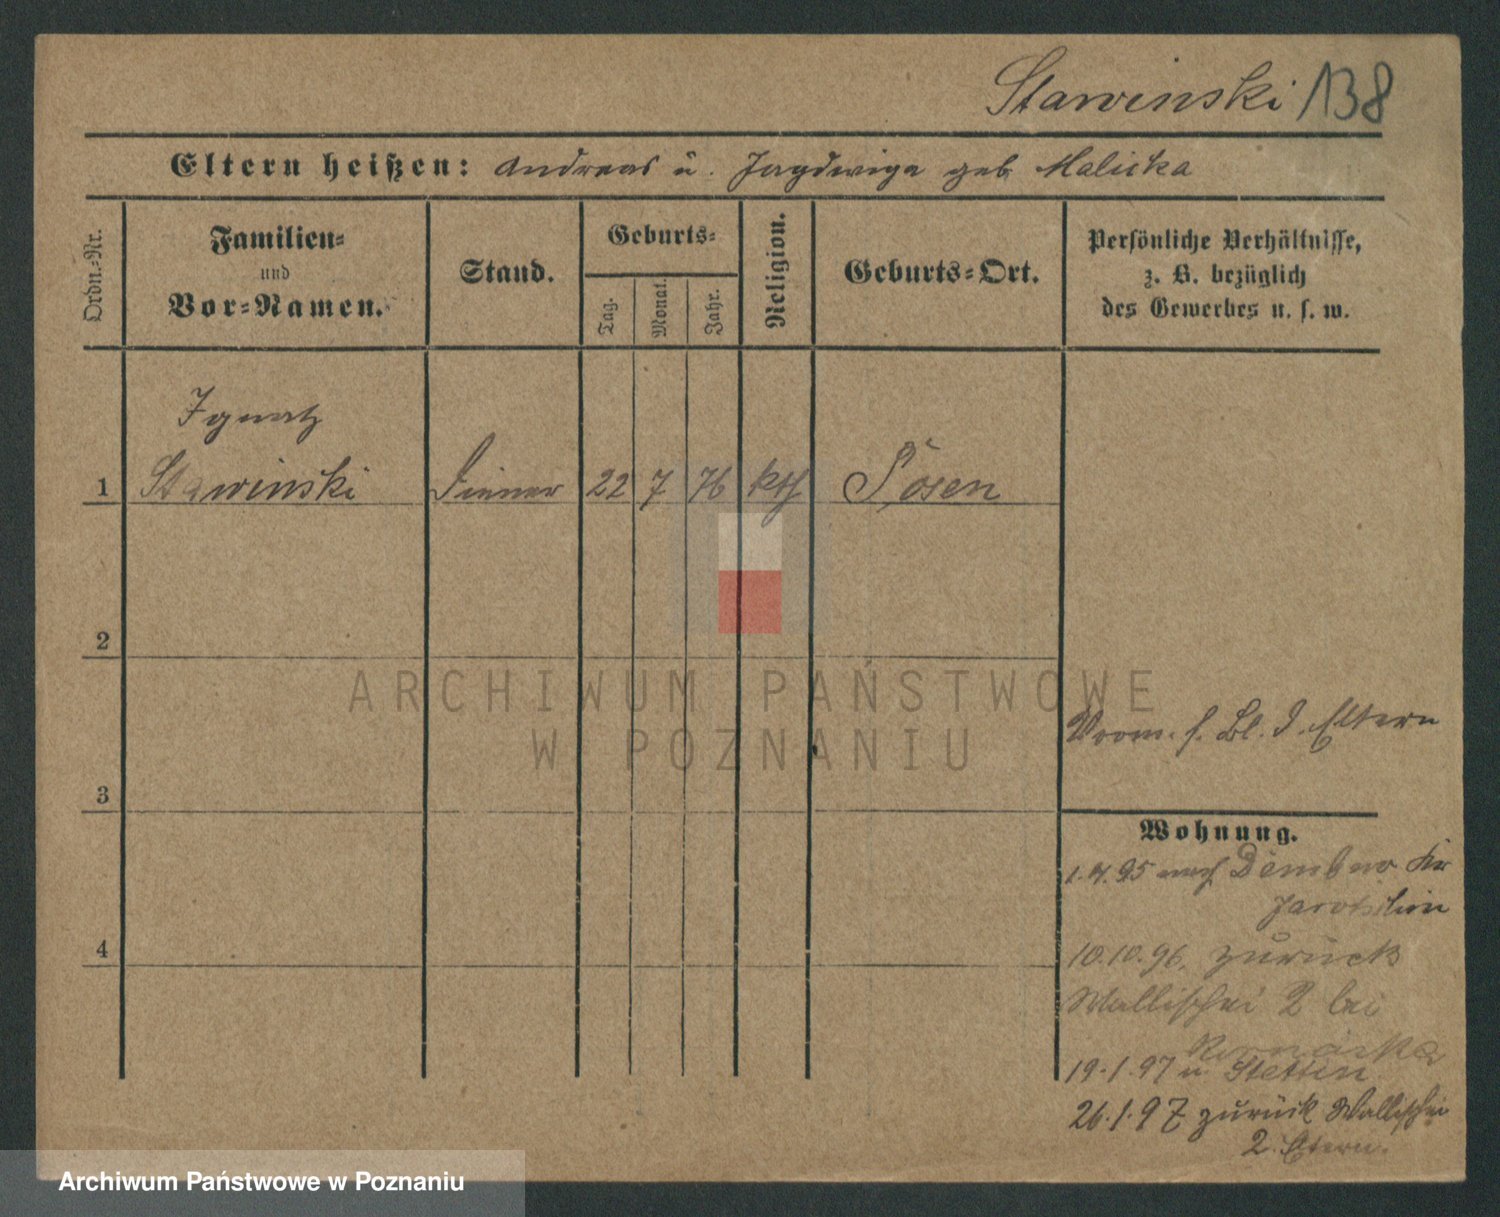 Stawinski 138
Eltern heißen: Andreas u. Jagdwiga geb Malicka
Ordn.-Nr.
Familien-
und
Vor-Namen.
Stand.
Geburts-
Tag.
Monat.
Jahr.
Religion.
Geburts-Ort.
Persönliche Verhältnisse,
z. B. bezüglich
des Gewerbes u. s. w.
Ignatz
1 Stawinski Diener 22 7 76 kth Posen
2
ARCHIWUM PAŃSTWOWE
W POZNANIU
Vrom. s. Bl. d. Eltern
3
Wohnung.
1.4.95 nach Dembno Kr
Jarotschin
4
10.10.96. zurück
Wallischei 2 bei
19.1.97 n Stettin
26.1.97 zurück Wallischei
2. Eltern.
Archiwum Państwowe w Poznaniu